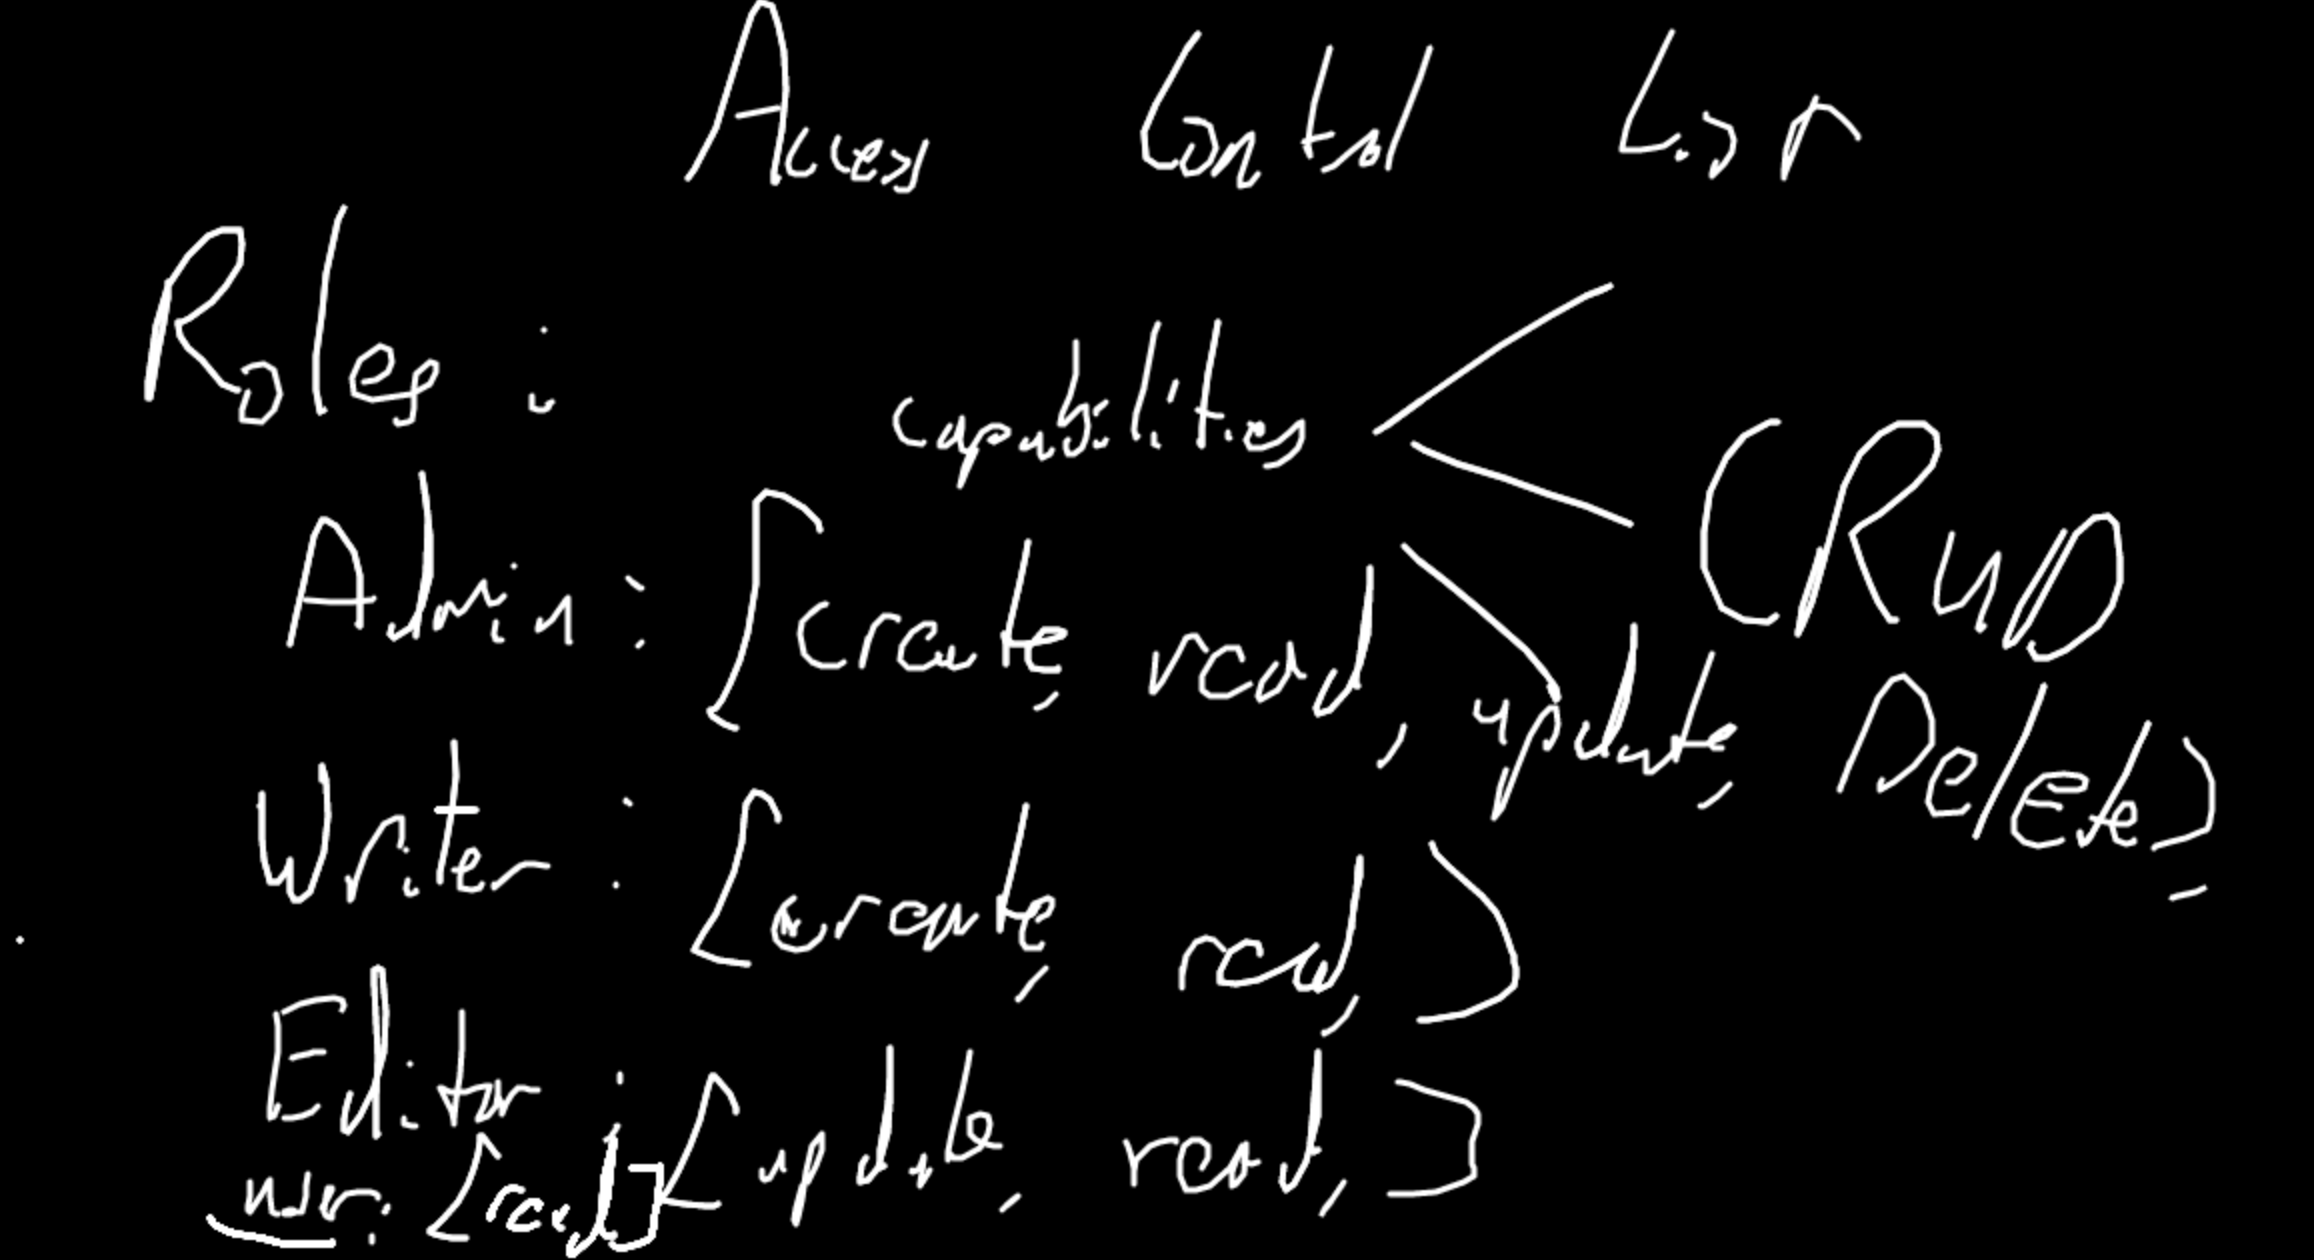 Access Control List
Roles:
capabilities CRUD
Admin: [create, read, update, Delete],
Writer: [create, read,]
Editor: [update, read,]
user: [read]